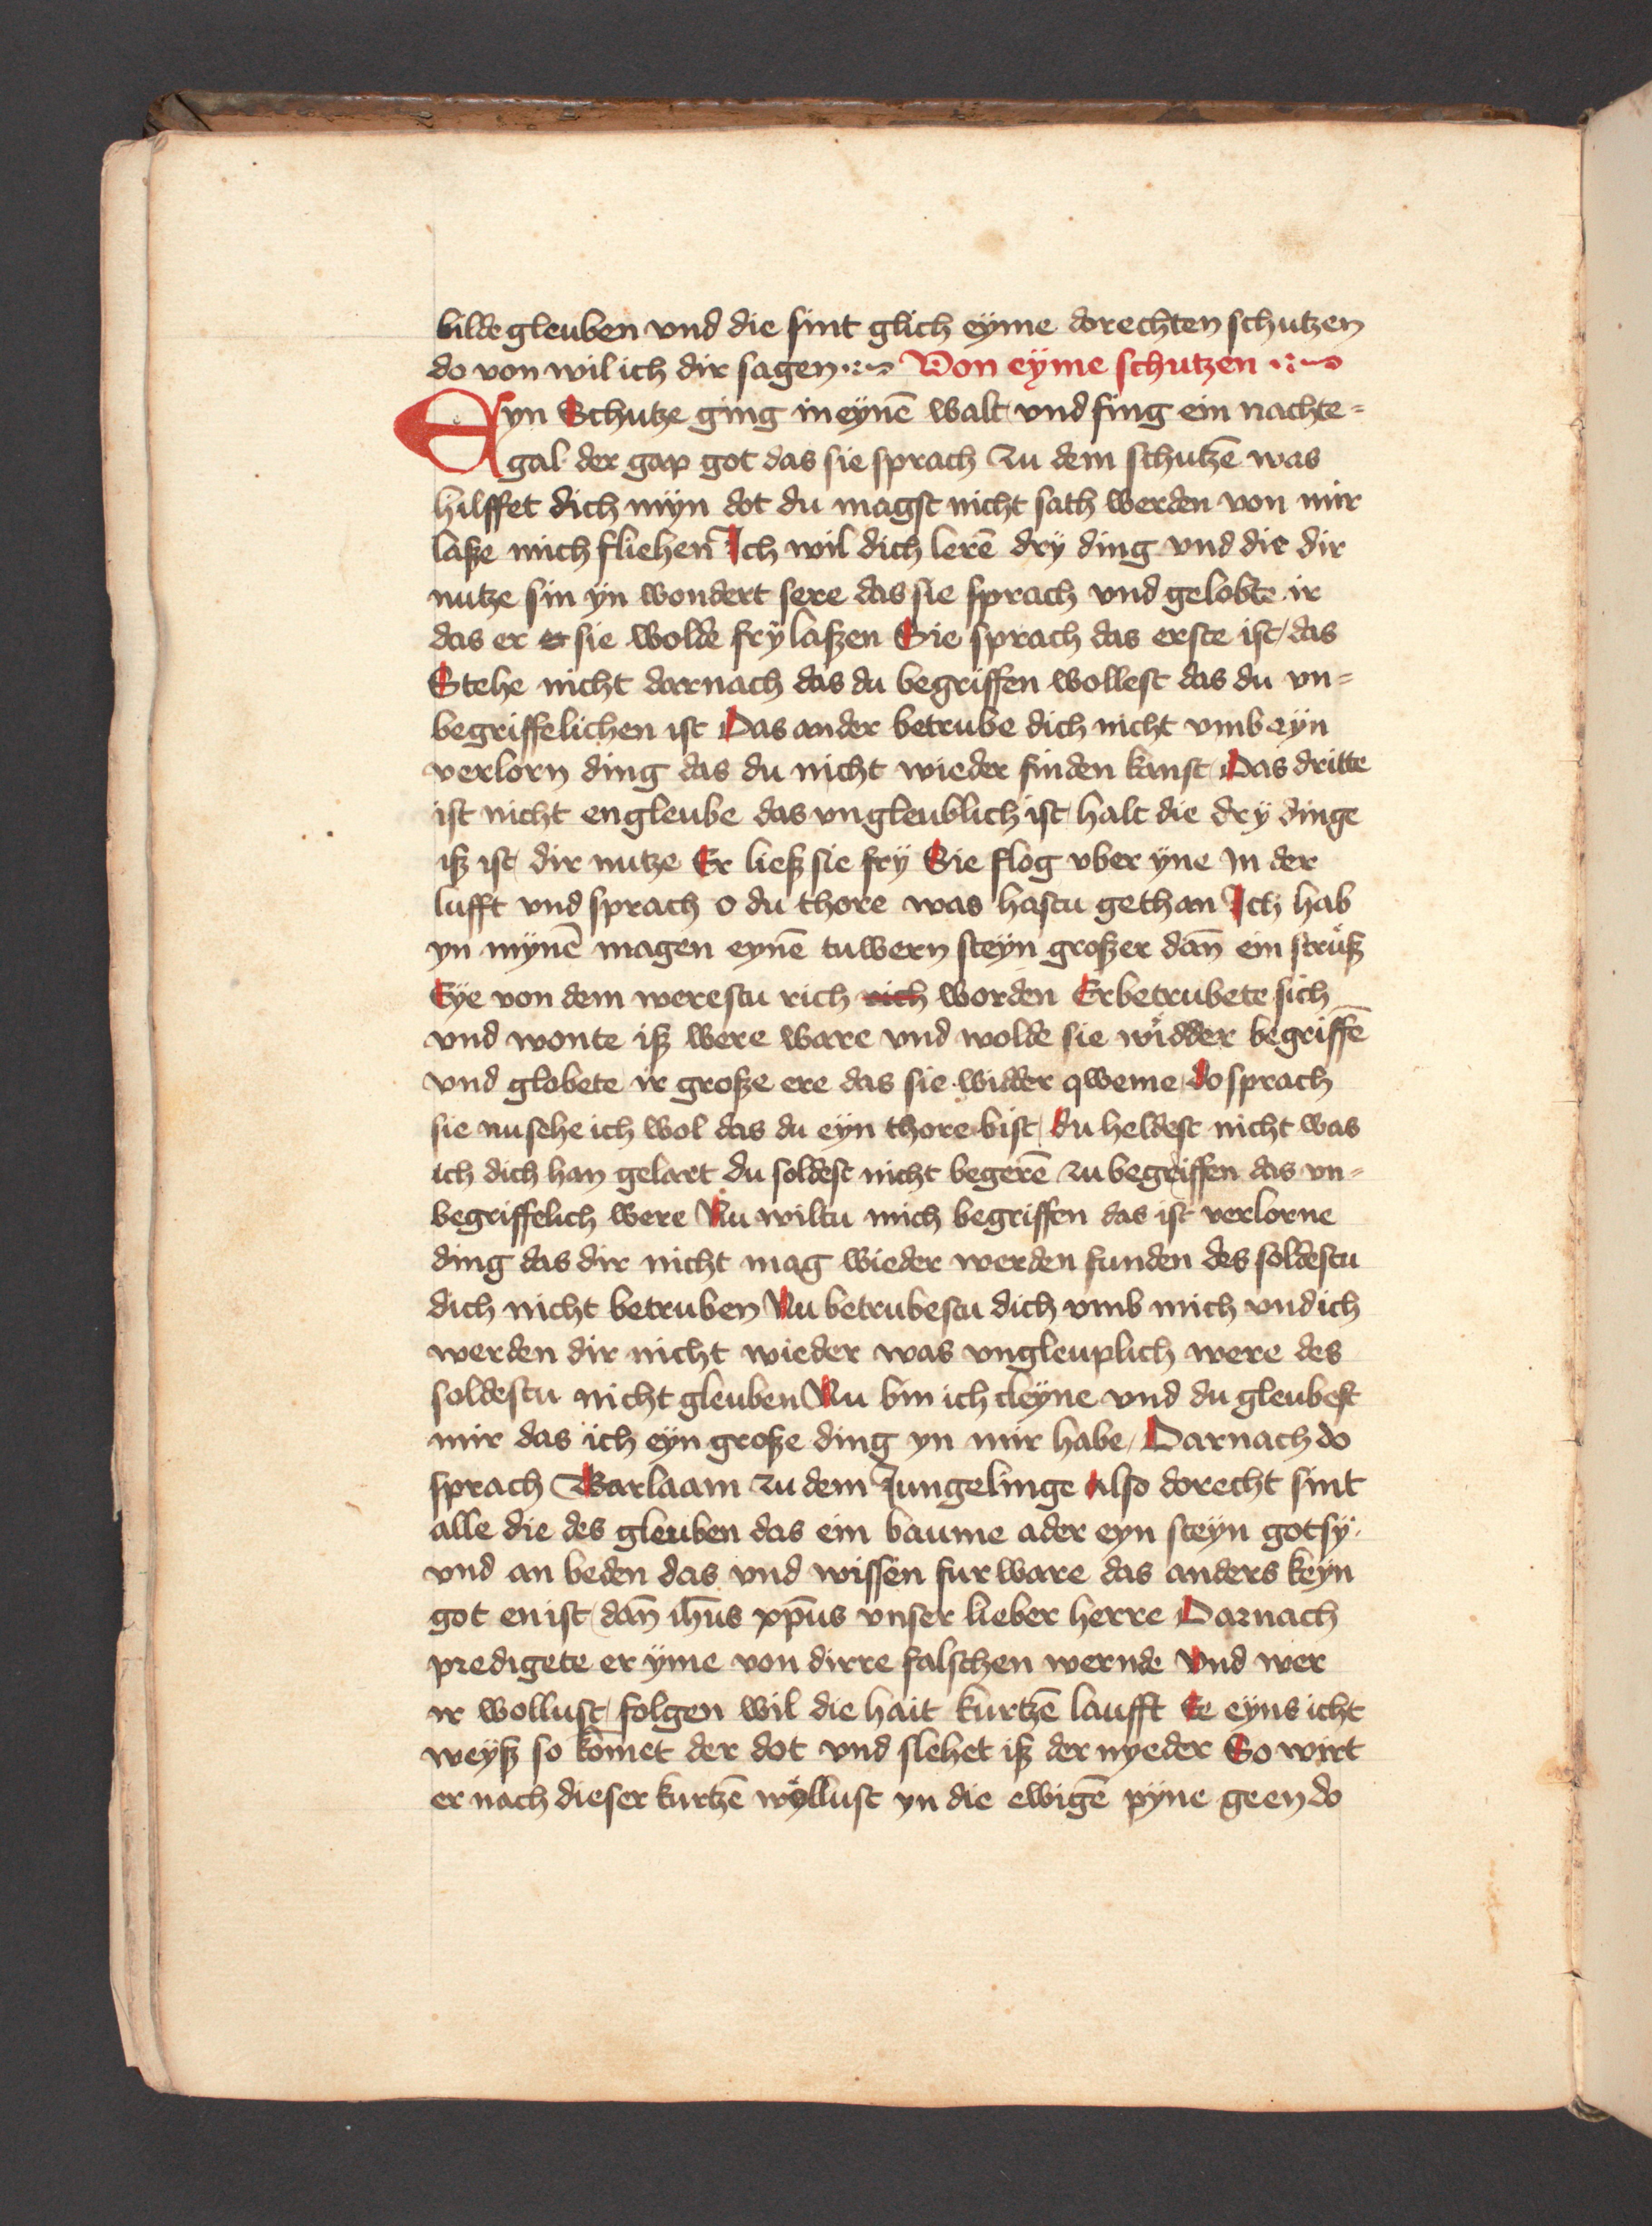 bilde gleuben vnd die sint glich eyme dorechten schutzen
do von wil ich dir sagen Von eyme schutzen
Eyn Schutze ging in eynē walt vnd fing ein nachte=
gal der gap got das sie sprach zu dem schutzē was
hilffet dich myn dot du magst nicht sath werden von mir
laße mich fliehen Ich wil dich lerē dry ding vnd die dir
nutze sin yn wondert sere das sie sprach vnd gelobte ir
das er sie wolde fry laßen Sie sprach das erste ist das
Stehe nicht darnach das du begriffen wollest das du vn=
begriffelichen ist Das ander betrube dich nicht vmb eyn
verlorn ding das du nicht wieder finden kanst Das dritte
ist nicht engleube das vngleublich ist halt die dry dinge
iß ist dir nutze Er ließ sie fry Sie flog vber yne In der
lufft vnd sprach o du thore was hastu gethan Ich hab
yn mynē magen eynē tuwern steyn großer dañ ein strůß
Eye von dem werestu rich rich worden Er betrubete sich
vnd wonte iß were ware vnd wolde sie widder begriffē
vnd globete ir große ere das sie widder qweme do sprach
sie nu sehe ich wol das du eyn thore bist du heldest nicht was
ich dich han gelart du soldest nicht begerē zu begriffen das vn=
begriffelich were Nu wiltu mich begriffen das ist verlorne
ding das dir nicht mag wieder werden funden des soldestu
dich nicht betruben Nu betrubestu dich vmb mich vnd ich
werden dir nicht wieder was vngleuplich were des
soldestu nicht gleuben Nu bin ich cleyne vnd du gleubest
mir das ich eyn große ding yn mir habe Darnach do
sprach Barlaam zu dem Jungelinge Also dorecht sint
alle die des gleuben das ein baume ader eyn steyn got sy
vnd an beden das vnd wissen fur ware das anders keyn
got en ist dañ ihūs xp̄us vnser lieber herre Darnach
predigete er yme von dirre falschen wernde Vnd wer
ir wollust folgen wil die hait kurtzē laufft Ee eyns icht
weyß so kōmet der dot vnd slehet iß der nyeder So wirt
er nach dieser kurtzē wollust yn die ewigē pyne geen do